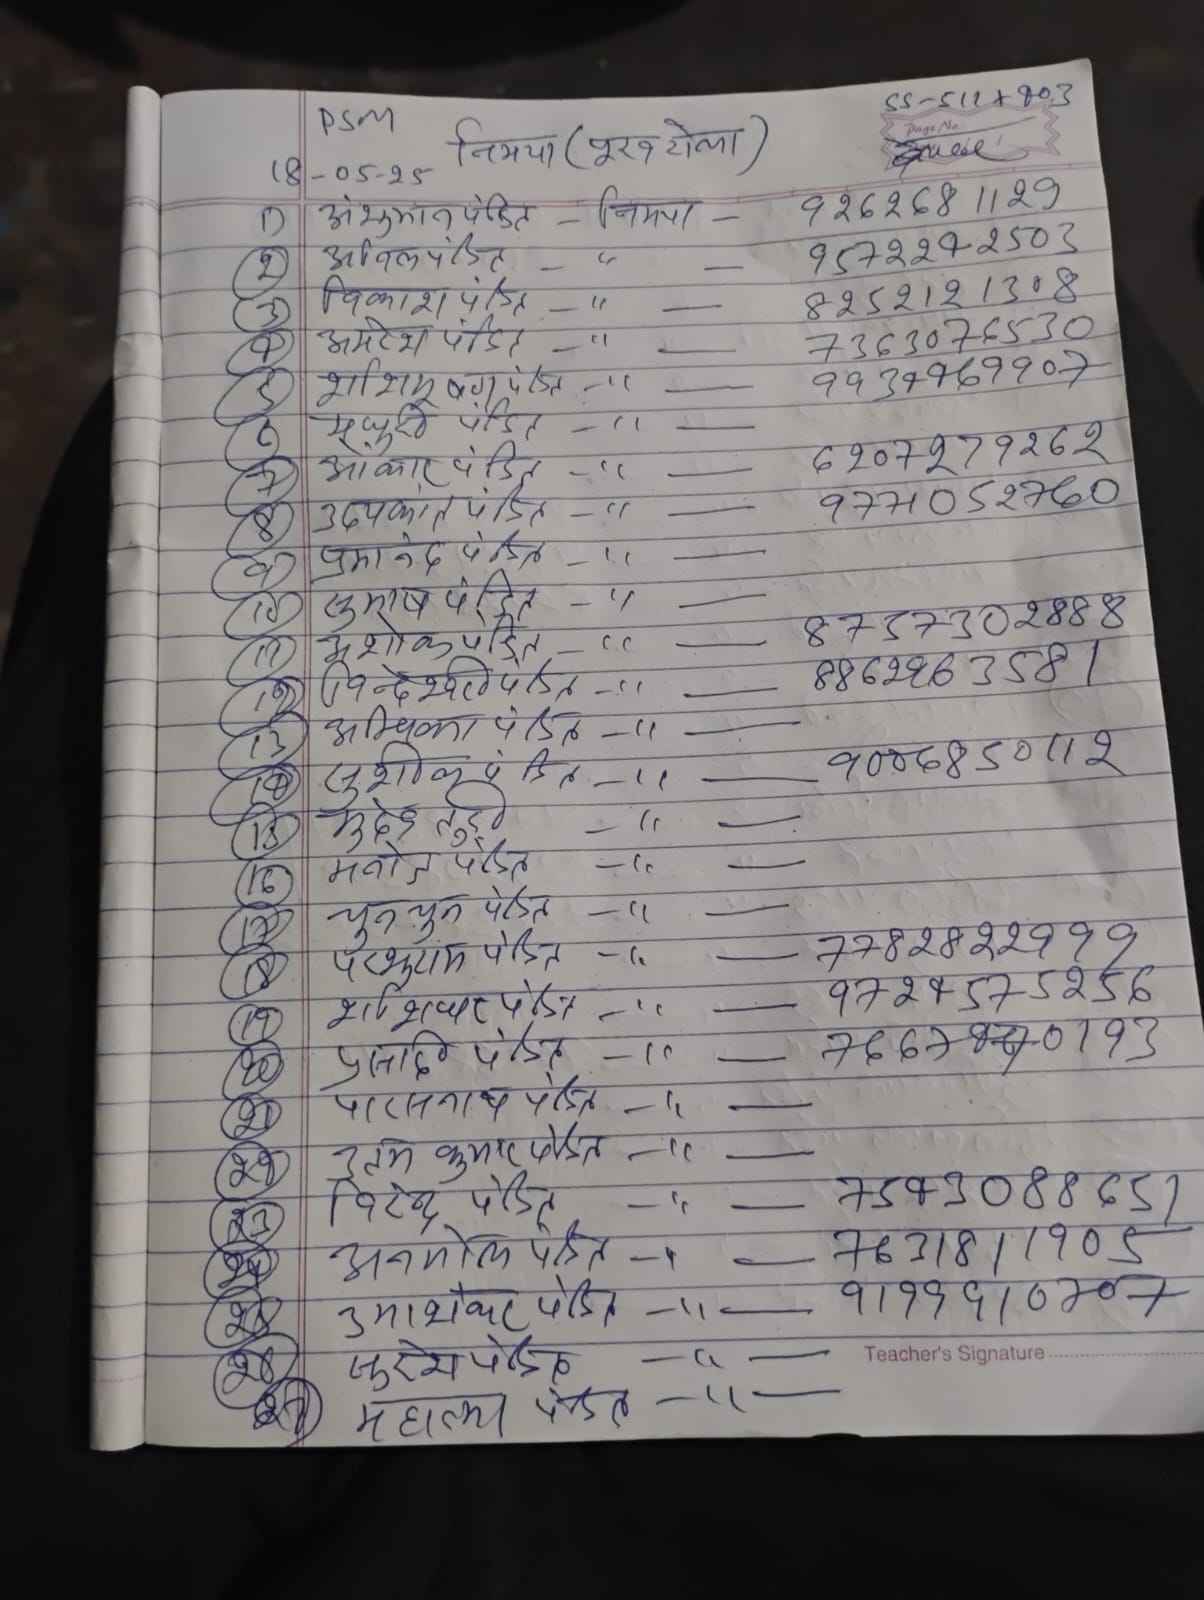 PSM
SS-511+803
Page No.
निमपा (पूरब टोला)
18-05-25
1) अंशुमान पंडित - निमपा - 9262681129
2 अनिल पंडित - " - 9572242503
3 विकाश पंडित - " - 8252121308
4 अमरेश पंडित - " - 7363076530
5 शशिभूषण पंडित - " - 9934969907
6 पंडित - " -
7 ओंकार पंडित - " - 6207279262
8 उदयकांत पंडित - " - 9771052760
9 प्रमानंद पंडित - " -
10 सुभाष पंडित - " -
11 अशोक पंडित - " - 8737302888
12 विन्देश्वरी पंडित - " - 8862963581
13 अम्बिका पंडित - " -
14 सुशील पंडित - " - 9006850112
15 - " -
16 मनोज पंडित - " -
17 चुनचुन पंडित - " -
18 परशुराम पंडित - " - 7782822999
19 शशिशेखर पंडित - " - 9724575256
20 प्रसादी पंडित - " -
21 पारसनाथ पंडित - " -
22 उत्तम कुमार पंडित - " -
23 विरेन्द्र पंडित - " - 7543088651
24 अनमोल पंडित - " - 7631811905
25 उमाशंकर पंडित - " - 9199910707
26 सुरेश पंडित - " -
Teacher's Signature
27 पंडित - " -